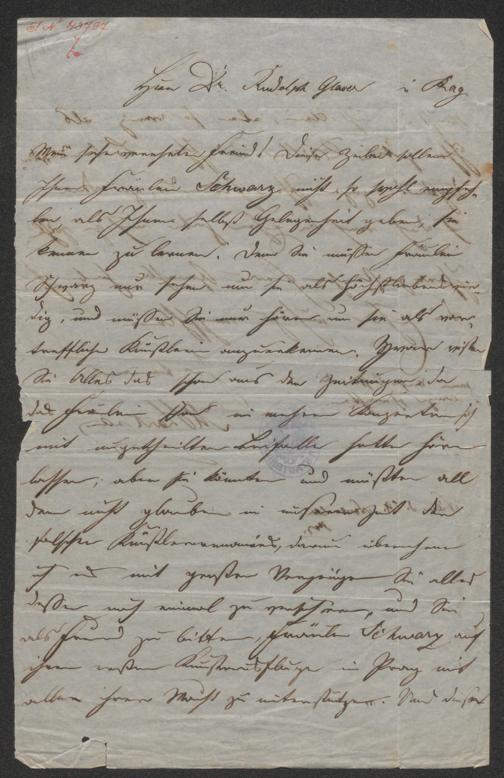 Herrn Dr. Rudolph Glaser in Prag
Mein sehr verehrter Freund! Diese Zeilen sollen
Ihnen Fräulein Schwarz nicht so wohl empfeh-
len, als Ihnen selbst Gelegenheit geben, sie
kennen zu lernen. Denn Sie müssen Fräulein
Schwarz nur sehen um sie als höchst liebenswür-
dig, und müssen Sie nur hören um sie als vor-
treffliche Künstlerin anzuerkennen. Zwar wissen
Sie Alles das schon aus den Zeitungen, da
das Fräulein in mehren Konzerten sich
mit ungetheiltem Beifalle hatte hören
lassen; aber Sie könnten und müßten all
dem nicht glauben in unserer Zeit der
falschen, darum übernehme
ich es mit großem Vergnügen Sie alles
dessen noch einmal zu versichern, und Sie
als Freund zu bitten, Fräulein Schwarz auf
ihrem ersten Kunstausfluge in Prag mit
allen Ihrer Macht zu unterstützen. Und dieser